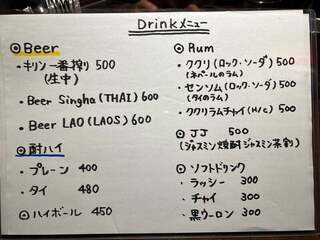 Drinkメニュー
◎Beer
・キリン一番搾り 500
(生中)
・Beer Singha(THAI) 600
・Beer LAO(LAOS) 600
◎酎ハイ
・プレーン 400
・タイ 480
◎ハイボール 450
◎Rum
・ククリ(ロック・ソーダ) 500
(ネパールのラム)
・センソム(ロック・ソーダ) 500
(タイのラム)
・ククリラムチャイ(H/C) 500
◎JJ 500
(ジャスミン焼酎ジャスミン茶割)
◎ソフトドリンク
・ラッシー 300
・チャイ 300
・黒ウーロン 300